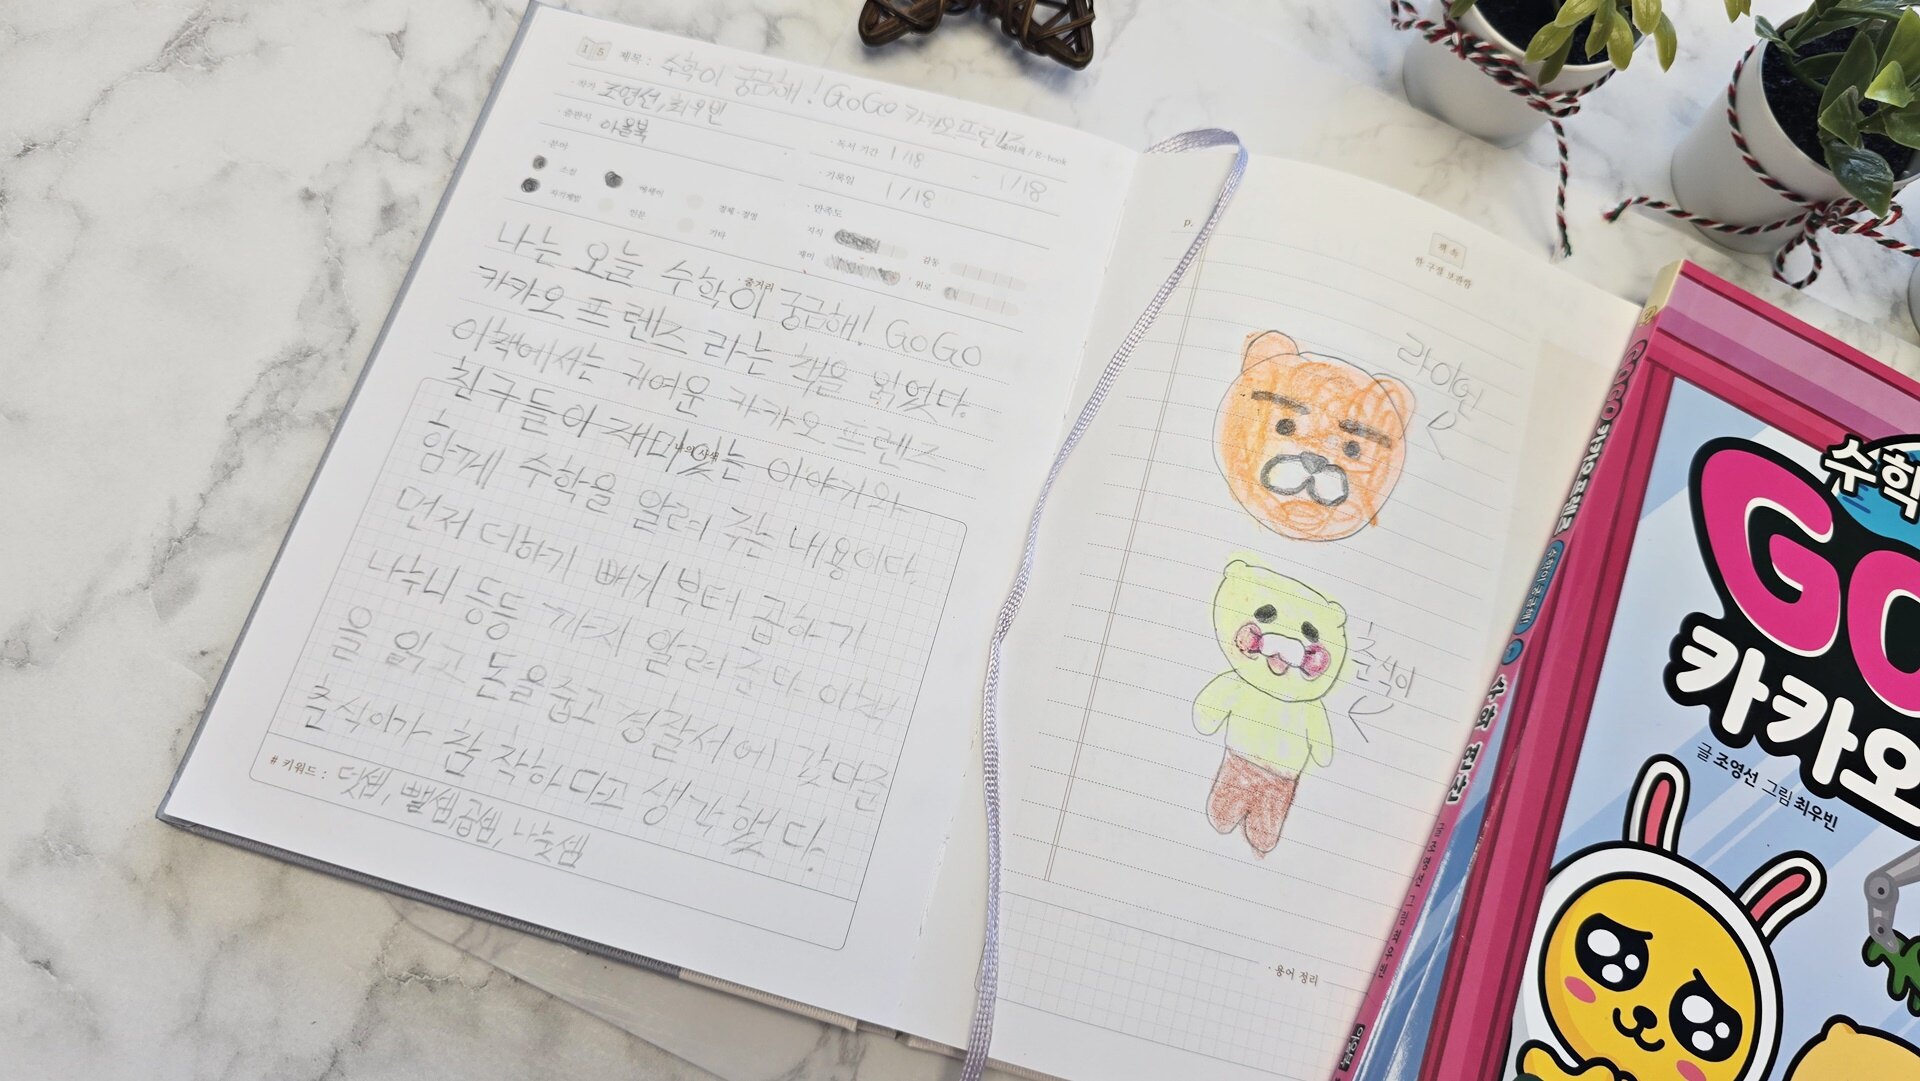 15 제목 : 수학이 궁금해! GoGo 카카오프렌즈
· 작가 조영선, 최우빈
· 출판사 아울북
종이책 / E-book
· 독서 기간 1/18 ~ 1/18
· 기록일 1/18
· 분야
소설 에세이 경제·경영
자기계발 인문 기타
· 만족도
지식 감동
재미 위로
줄거리
나는 오늘 수학이 궁금해! GoGo
카카오 프렌즈 라는 책을 읽었다.
이책에서는 귀여운 카카오 프렌즈
친구들이 재미있는 이야기와
나의 사색
함께 수학을 알려 주는 내용이다.
먼저 더하기 빼기 부터 곱하기
나누니 등등 까지 알려준다 이책
을 읽고 돈을줍고 경찰서에 갔다준
춘식이가 참 착하다고 생각했다.
# 키워드 : 덧셈, 뺄셈, 곱셈, 나눗셈
p.
책 속
한 구절 보관함
라이언
춘식이
· 용어 정리
GOGO 카카오프렌즈 수학이 궁금해! 1 수와 연산
글 조영선 그림 최우빈
아울북
수학
GO
카카오
글 조영선 그림 최우빈